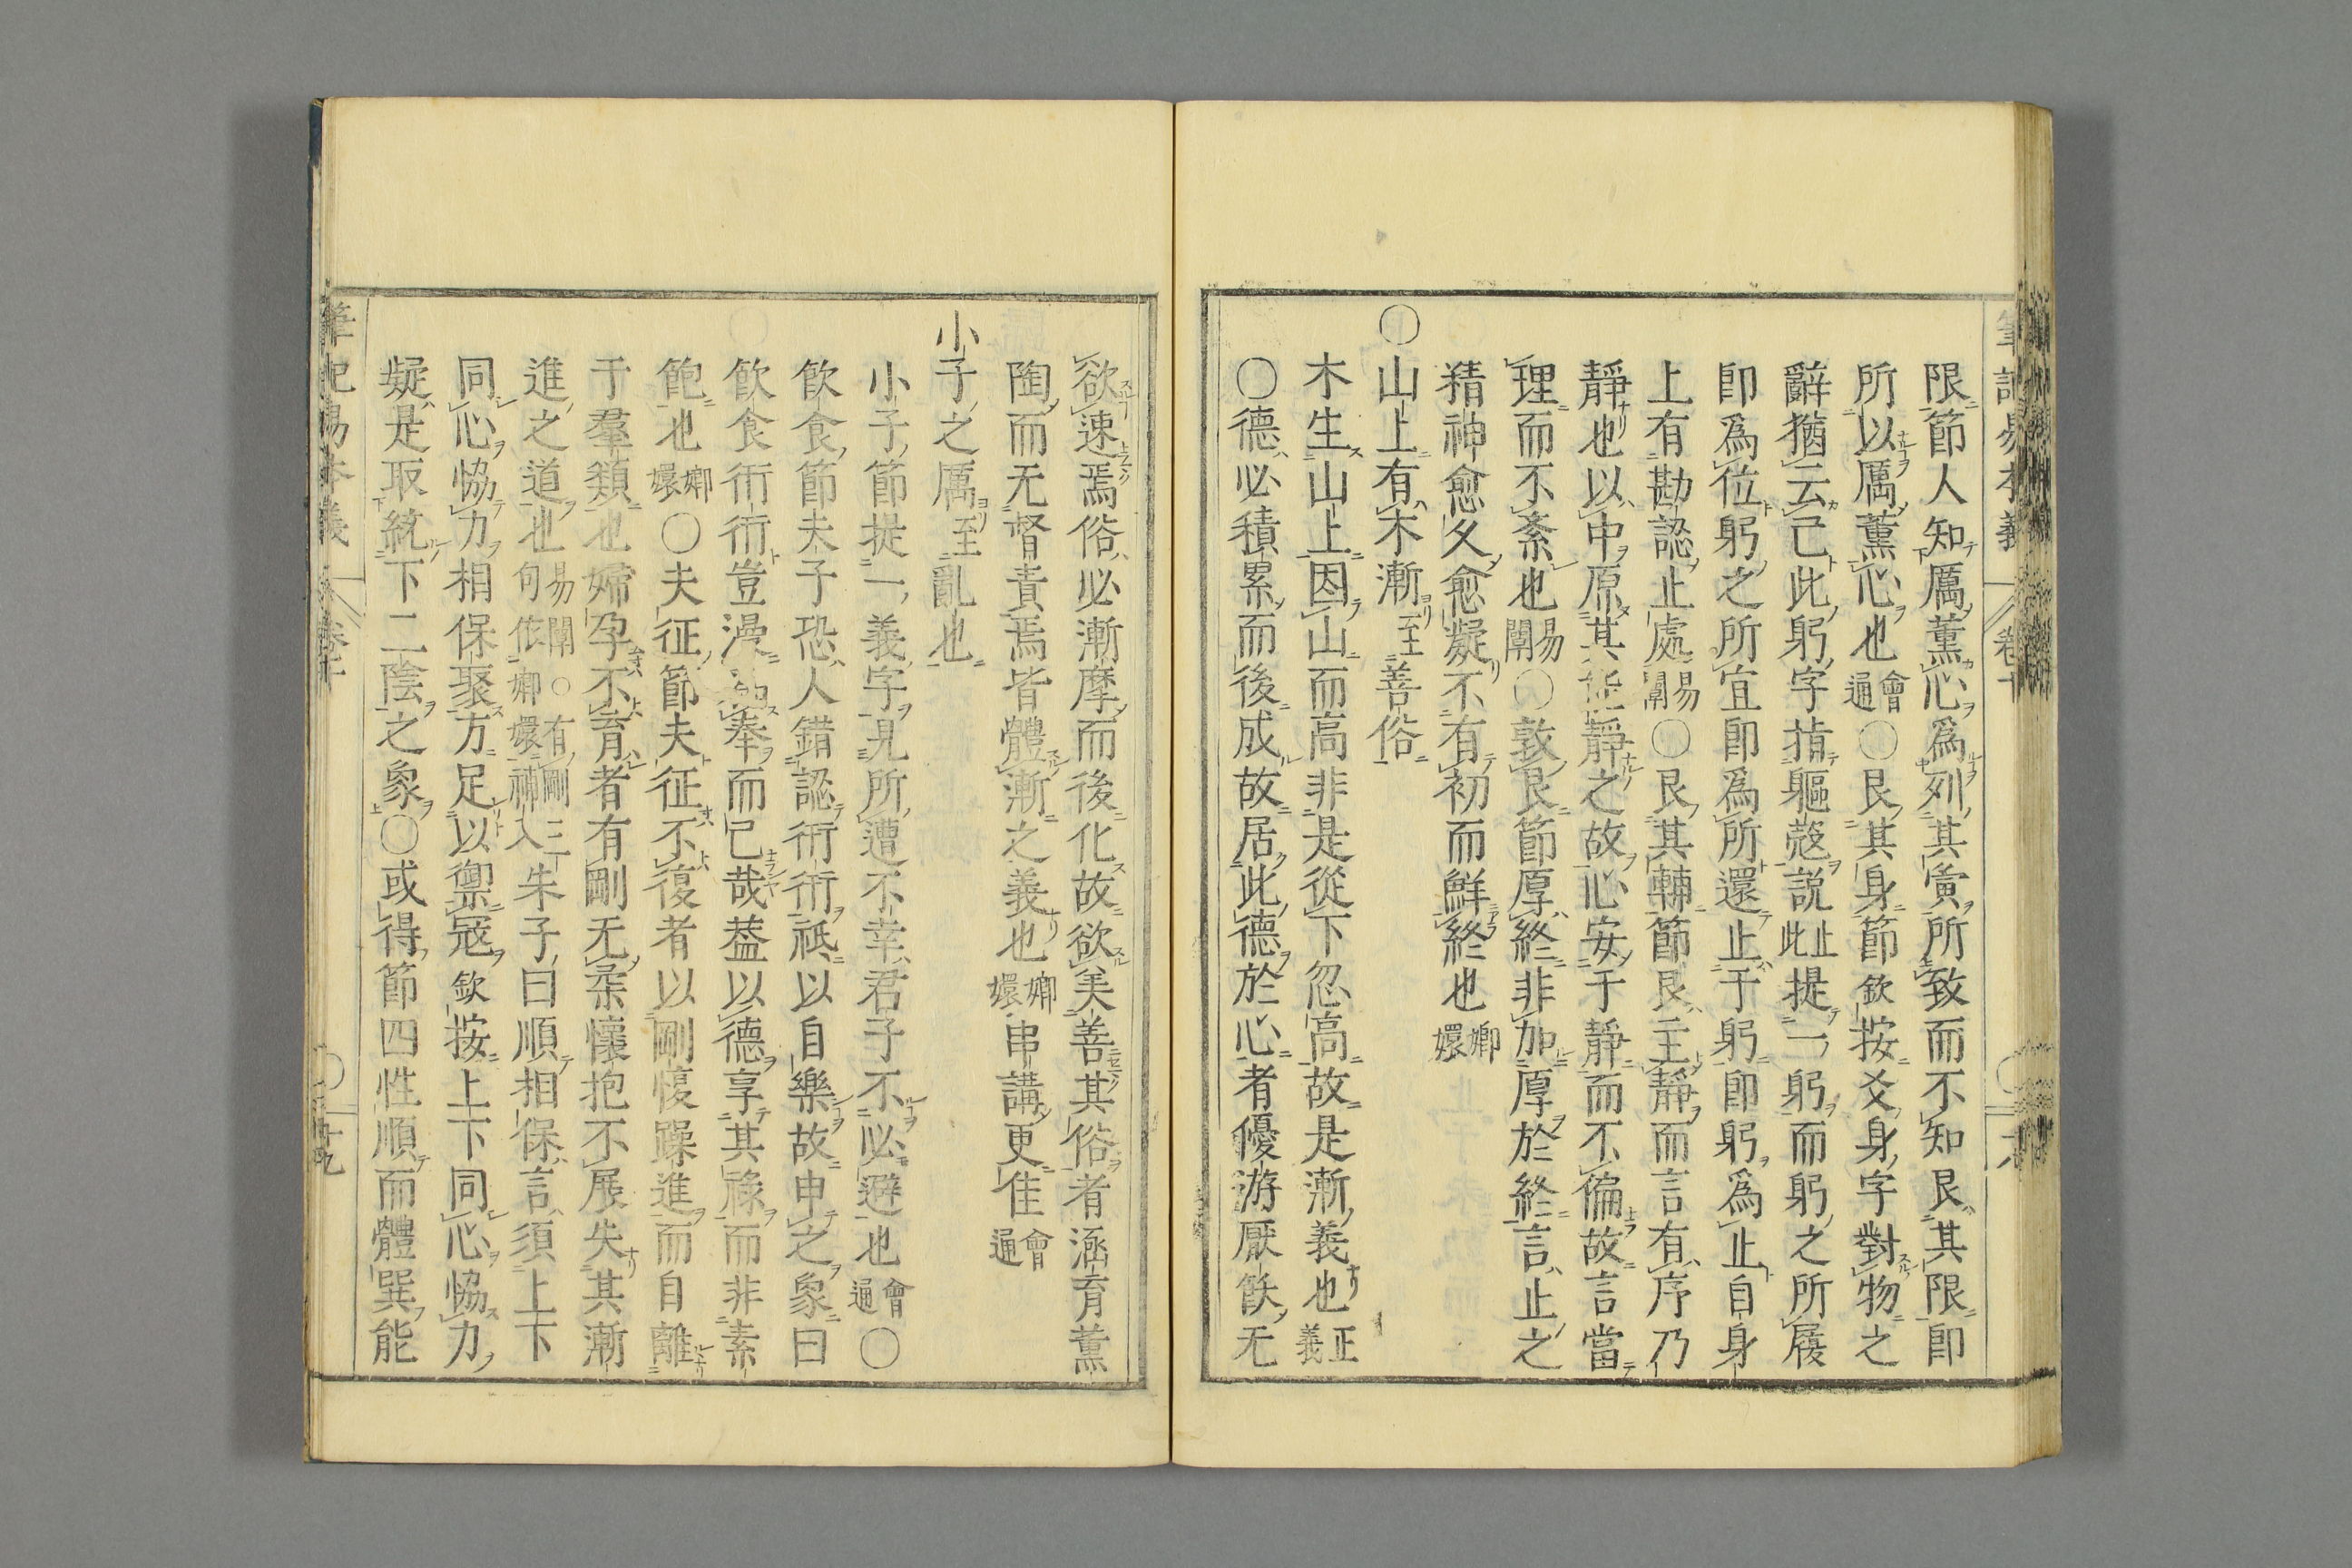 限節人知厲薰心爲列其夤所致而不知艮其限卽
所以厲薰心也會通○艮其身節欽按爻身字對物之
辭猶云己此躬字指軀殼說止此提一躬而躬之所履
卽爲位躬之所宜卽爲所還止于躬卽躬爲止自身
上有勘認止處易闡○艮其輔節艮主靜而言有序乃
靜也以中原其能靜之故心安于靜而不偏故言當
理而不紊也易闡○敦艮節厚終非加厚於終言止之
精神愈久愈凝不有初而鮮終也嫏嬛
○山上有木漸至善俗
木生山上因山而高非是從下忽高故是漸義也正義
○德必積累而後成故居此德於心者優游厭飫无
欲速焉俗必漸摩而後化故欲美善其俗者涵育薰
陶而无督責焉皆體漸之義也嫏嬛串講更佳會通
小子之厲至亂也
小子節提一義字見所遭不幸君子不必避也會通○
飮食節夫子恐人錯認衎衎祇以自樂故申之象曰
飮食衎衎豈漫奉而已哉葢以德享其祿而非素
飽也嫏嬛○夫征節夫征不復者以剛愎躁進而自離
于羣類也婦孕不育者有剛无柔懷抱不展失其漸
進之道也易闡○有剛三句依嫏嬛補入朱子曰順相保言須上下
同心協力相保聚方足以禦寇欽按上下同心協力
凝是取統下二陰之象○或得節四性順而體巽能
筆記易本義
卷十
十九